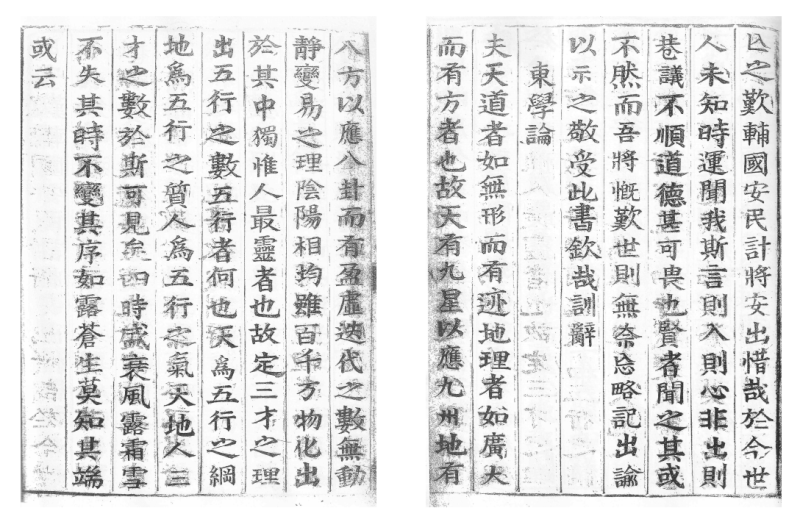 亾之歎輔國安民計將安出惜哉於今世
人未知時運聞我斯言則入則心非出則
巷議不順道德甚可畏也賢者聞之其或
不然而吾將慨歎世則無奈忘略記出諭
以示之敬受此書欽哉訓辭
東學論
夫天道者如無形而有迹地理者如廣大
而有方者也故天有九星以應九州地有
八方以應八卦而有盈虛迭代之數無動
靜變易之理陰陽相均雖百千万物化出
於其中獨惟人最靈者也故定三才之理
出五行之數五行者何也天爲五行之綱
地爲五行之質人爲五行之氣天地人三
才之數於斯可見矣四時盛衰風露霜雪
不失其時不變其序如露蒼生莫知其端
或云